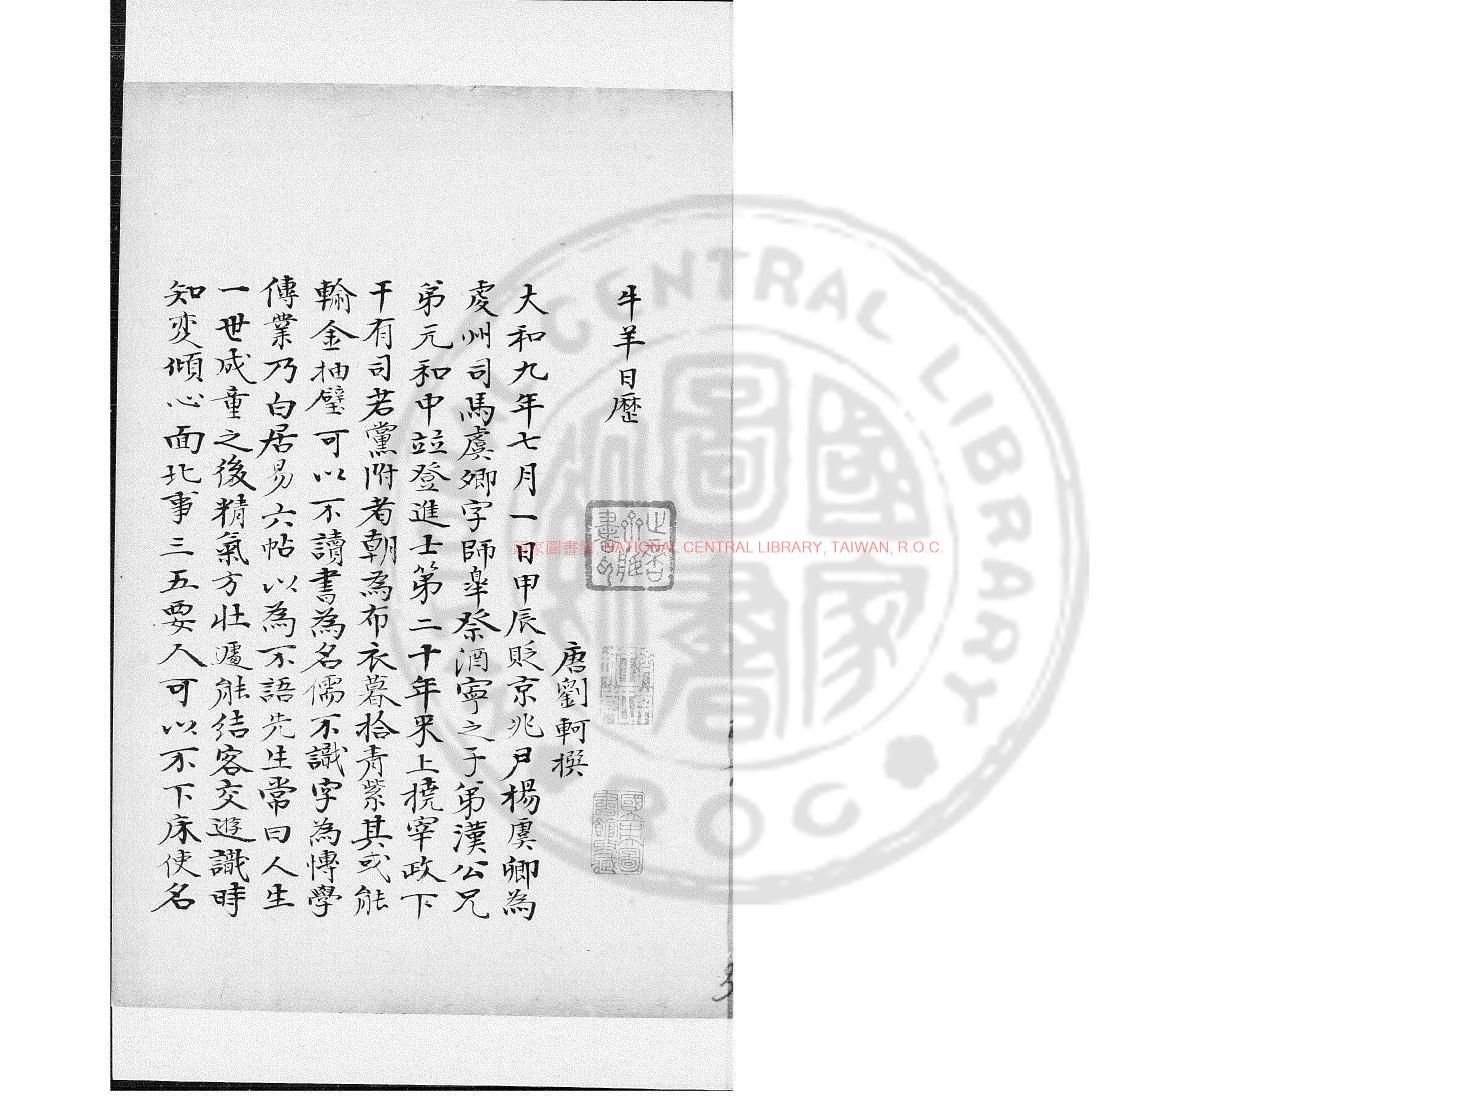 牛羊日歷
唐劉軻撰
大和九年七月一日甲辰貶京兆尹楊虞卿為
虔州司馬虞卿字師皋祭酒寧之子弟漢公兄
弟元和中竝登進士第二十年來上撓宰政下
干有司若黨附者朝為布衣暮拾青紫其或能
輸金抽璧可以不讀書為名儒不識字為博學
傳業乃白居易六帖以為不語先生常曰人生
一世成童之後精氣方壯遽能結客交遊識時
知变傾心面北事三五要人可以不下床使名
國家圖書館, NATIONAL CENTRAL LIBRARY, TAIWAN, R.O.C.
NATIONAL CENTRAL LIBRARY
R O C
國家圖書